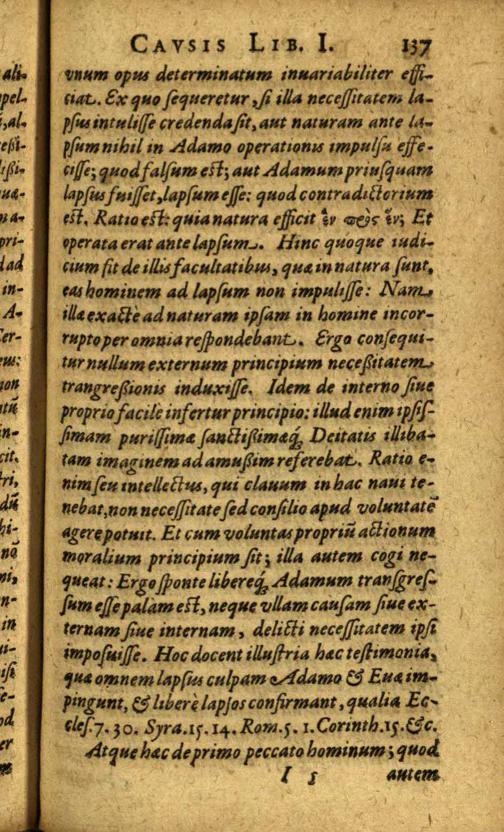 CAVSIS LIB. I. 137
vnum opus determinatum inuariabiliter effi-
ciat. Ex quo ſequeretur, ſi illa neceſſitatem la-
pſus intuliſſe credenda ſit, aut naturam ante la-
pſum nihil in Adamo operationis impulſu effe-
ciſſe; quod falſum eſt; aut Adamum priuſquam
lapſus fuiſſet, lapſum eſſe: quod contradictorium
eſt. Ratio eſt: quia natura efficit ἓν πρὸς ἓν; Et
operata erat ante lapſum. Hinc quoque iudi-
cium fit de illis facultatibus, quæ in natura ſunt,
eas hominem ad lapſum non impuliſſe: Nam
illæ exactè ad naturam ipſam in homine incor-
rupto per omnia reſpondebant. Ergo conſequi-
tur nullum externum principium neceßitatem
trangreßionis induxiſſe. Idem de interno ſiue
proprio facilè infertur principio: illud enim ipſiſ-
ſimam puriſſimæ ſanctißimæq́; Deitatis illiba-
tam imaginem ad amußim referebat. Ratio e-
nim ſeu intellectus, qui clauum in hac naui te-
nebat, non neceſſitate ſed conſilio apud voluntatē
agere potuit. Et cum voluntas propriū actionum
moralium principium ſit; illa autem cogi ne-
queat: Ergo ſponte libereq́; Adamum tranſgreſ-
ſum eſſe palàm eſt, neque vllam cauſam ſiue ex-
ternam ſiue internam, delicti neceſſitatem ipſi
impoſuiſſe. Hoc docent illuſtria hæc teſtimonia,
quæ omnem lapſus culpam Adamo & Euæ im-
pingunt, & liberè lapſos confirmant, qualia Ec-
cleſ. 7. 30. Syra. 15. 14. Rom. 5. 1. Corinth. 15. &c.
Atque hæc de primo peccato hominum; quod
I 5 autem